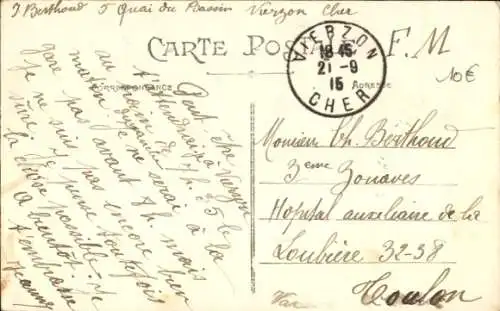 J Berthoud 5 Quai du Bassin Vierzon Cher
CARTE POSTALE F. M
VIERZON
18 45
21 - 9
15
CHER
10€
CORRESPONDANCE
ADRESSE
Peut être
t'attendrai-je à Vierzon
au train de 7h. 25 le
matin je ne serai à la
gare pas avant 8h. mais
je ne suis pas encore bien
sûre. Je pense toutefois
la chose possible. Je
A bientôt
t'embrasse
Jeanne
Monsieur Ch. Berthoud
3eme Zouaves
Hopital auxiliaire de la
Loubière 32-38
Toulon
Var